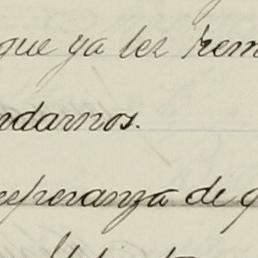 que ya les rem
ndarnos.
esperanza de q